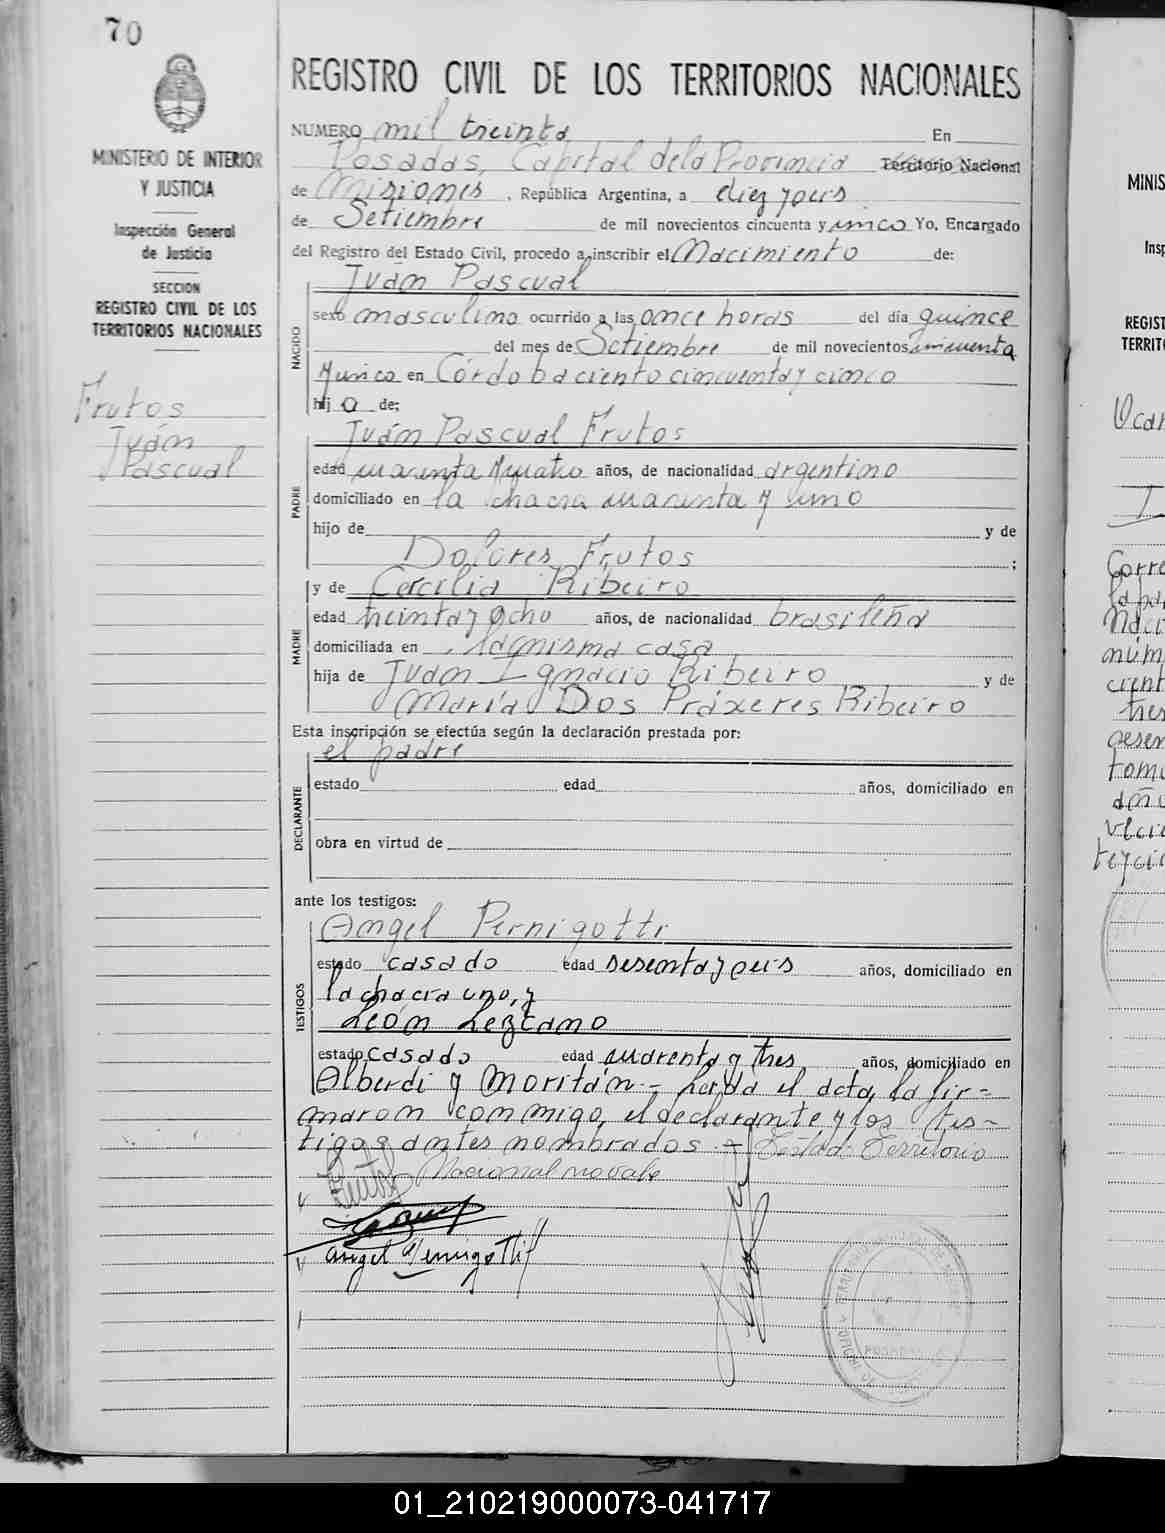 70
MINISTERIO DE INTERIOR
Y JUSTICIA
Inspección General
de Justicia
SECCION
REGISTRO CIVIL DE LOS
TERRITORIOS NACIONALES
Frutos
Juán
Pascual
REGISTRO CIVIL DE LOS TERRITORIOS NACIONALES
NUMERO mil treinta En
Posadas, Capital de la Provincia Territorio Nacional
de Misiones, República Argentina, a diez y seis
de Setiembre de mil novecientos cincuenta y unco Yo, Encargado
del Registro del Estado Civil, procedo a inscribir el Nacimiento de:
Juán Pascual
NACIDO
sexo masculino ocurrido a las once horas del día quince
del mes de Setiembre de mil novecientos cincuenta
y unco en Córdoba ciento cincuenta y cinco
hijo de:
Juán Pascual Frutos
PADRE
edad cuarenta y cuatro años, de nacionalidad argentino
domiciliado en la chacra cuarenta y uno
hijo de y de
Dolores Frutos ;
y de Cecilia Ribeiro
MADRE
edad treinta y ocho años, de nacionalidad brasileña
domiciliada en la misma casa
hija de Juan Ignacio Ribeiro y de
María Dos Práxeres Ribeiro
Esta inscripción se efectúa según la declaración prestada por:
el padre
DECLARANTE
estado edad años, domiciliado en
obra en virtud de
ante los testigos:
Angel Pernigotti
TESTIGOS
estado casado edad sesenta y seis años, domiciliado en
la chacra uno, y
León Lezcano
estado casado edad cuarenta y tres años, domiciliado en
Alberdi y Moritán - Leída el acta, la fir-
maron conmigo, el declarante y los tes-
tigos antes nombrados - Testado: Territorio
Nacional no vale
Frutos
Angel Pernigotti
POSADAS
MINIS
Insp
REGIST
TERRIT
Ocar
I
Corre
la pa
Naci
núm
cient
tres
01_210219000073-041717